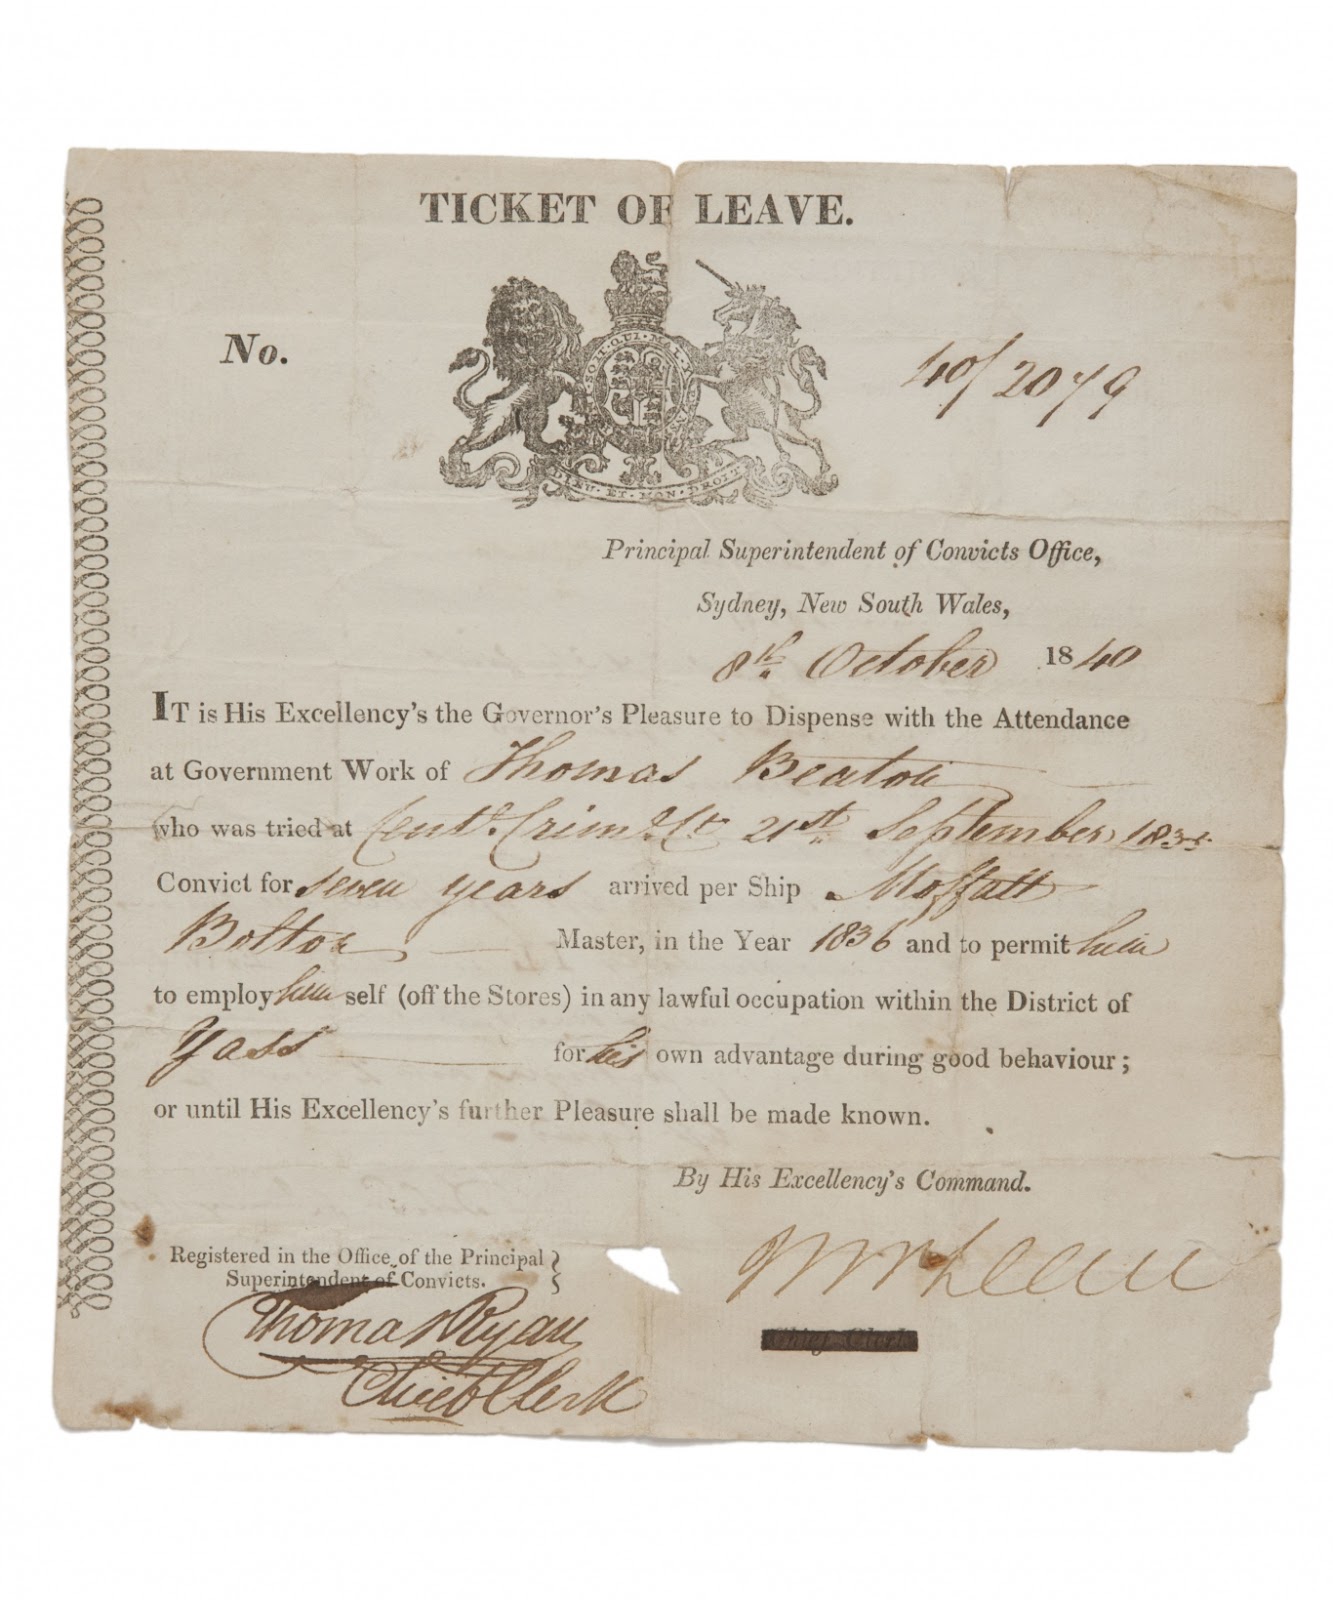 TICKET OF LEAVE.
No. 40/2079
SOIT·QUI·MAL
DIEU·ET·MON·DROIT
Principal Superintendent of Convicts Office,
Sydney, New South Wales,
8th October 1840
IT is His Excellency's the Governor's Pleasure to Dispense with the Attendance
at Government Work of Thomas Beaton
who was tried at Centl. Criml. Ct 21st September 1835
Convict for seven years arrived per Ship Moffatt
Bolton Master, in the Year 1836 and to permit him
to employ him self (off the Stores) in any lawful occupation within the District of
Yass for his own advantage during good behaviour;
or until His Excellency's further Pleasure shall be made known.
By His Excellency's Command.
Registered in the Office of the Principal
Superintendent of Convicts.
Thomas Ryan
Chief Clerk
Chief Clerk